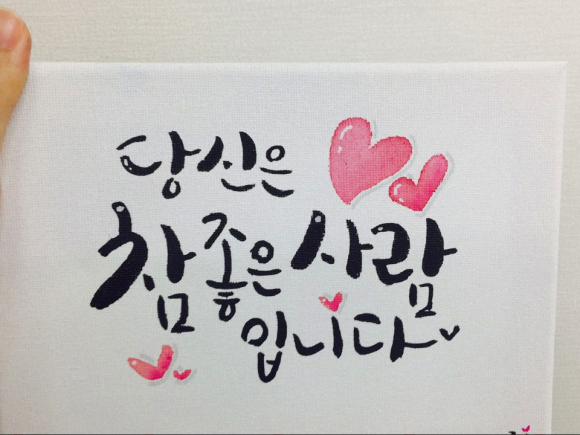 당신은
참 좋은 사람
입니다